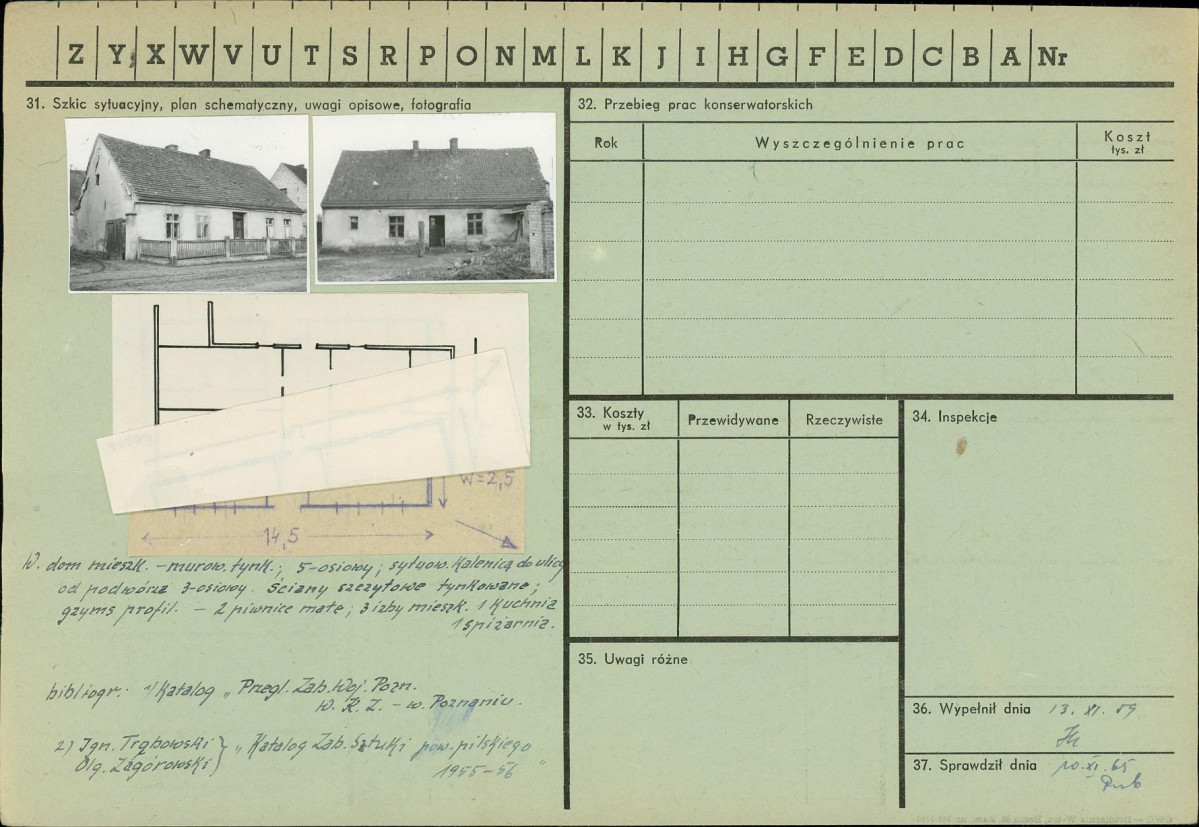 Z Y X W V U T S R P O N M L K J I H G F E D C B A Nr
31. Szkic sytuacyjny, plan schematyczny, uwagi opisowe, fotografia
W=2,5
14,5
W. dom mieszk. – murow. tynk.; 5-osiowy; sytuow. Kalenicą do ulicy
od podwórza 3-osiowy. Ściany szczytowe tynkowane;
gzyms profil. – 2 piwnice małe; 3 izby mieszk. 1 Kuchnia
1 spiżarnia.
bibliogr: 1/ Katalog „Przegl. Zab. Woj. Pozn.
W. K. Z. – w. Poznaniu.
2) Ign. Trąbowski } „Katalog Zab. Sztuki pow. pilskiego
Olg. Zagórowski } 1955–56 "
32. Przebieg prac konserwatorskich
Rok Wyszczególnienie prac Koszt
tys. zł
33. Koszty
w tys. zł
Przewidywane Rzeczywiste
34. Inspekcje
35. Uwagi różne
36. Wypełnił dnia 13. XI. 59
37. Sprawdził dnia 10. XI. 65